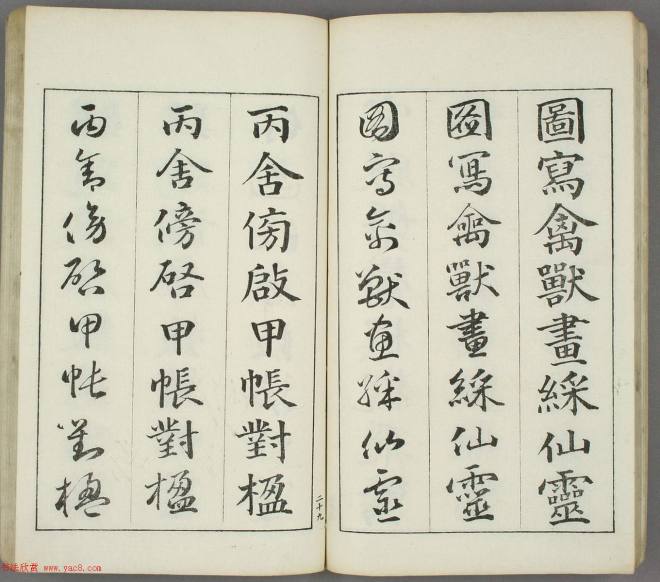 圖寫禽獸畫綵仙靈
圖寫禽獸畫綵仙靈
圖寫禽獸畫綵仙靈
丙舍傍啟甲帳對楹
丙舍傍啓甲帳對楹
丙舍傍啓甲帳對楹
二十九
书法欣赏 www.yac8.com